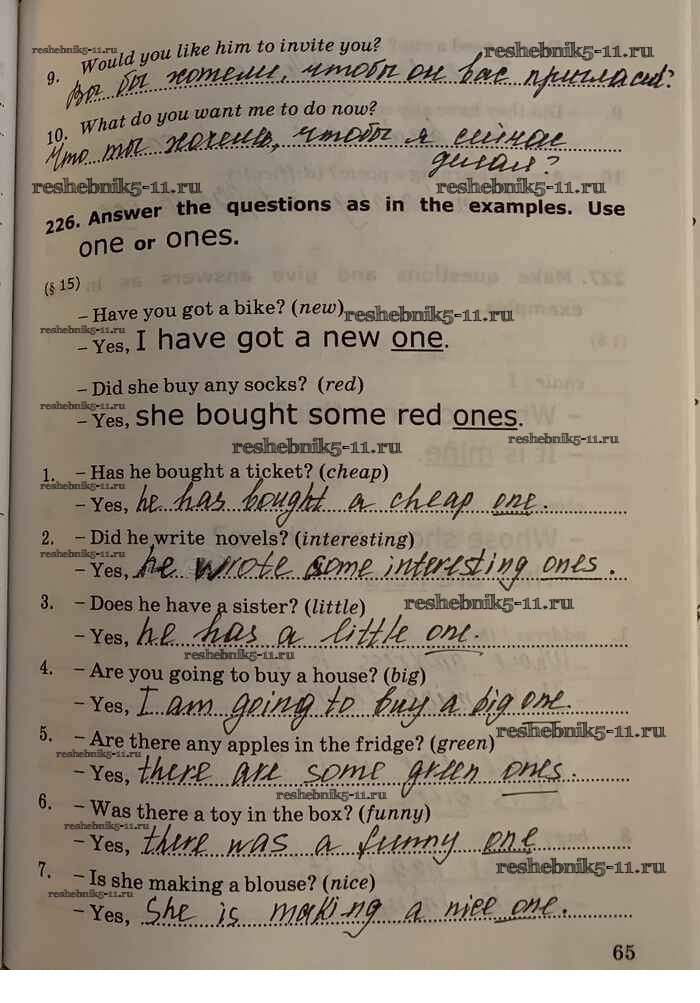 reshebnik5-11.ru
9. Would you like him to invite you? reshebnik5-11.ru
Вы бы хотели, чтобы он вас пригласил?
10. What do you want me to do now?
Что ты хочешь, чтобы я сейчас
делал?
reshebnik5-11.ru reshebnik5-11.ru
226. Answer the questions as in the examples. Use
one or ones.
(§ 15)
– Have you got a bike? (new) reshebnik5-11.ru
reshebnik5-11.ru
– Yes, I have got a new one.
– Did she buy any socks? (red)
reshebnik5-11.ru
– Yes, she bought some red ones.
reshebnik5-11.ru reshebnik5-11.ru
1. – Has he bought a ticket? (cheap)
reshebnik5-11.ru
– Yes, he has bought a cheap one.
2. – Did he write novels? (interesting)
reshebnik5-11.ru
– Yes, he wrote some interesting ones.
3. – Does he have a sister? (little) reshebnik5-11.ru
– Yes, he has a little one.
reshebnik5-11.ru
4. – Are you going to buy a house? (big)
– Yes, I am going to buy a big one.
5. – Are there any apples in the fridge? (green) reshebnik5-11.ru
reshebnik5-11.ru
– Yes, there are some green ones.
reshebnik5-11.ru
6. – Was there a toy in the box? (funny)
reshebnik5-11.ru
– Yes, there was a funny one
reshebnik5-11.ru
7. – Is she making a blouse? (nice)
reshebnik5-11.ru
– Yes, She is making a nice one.
65